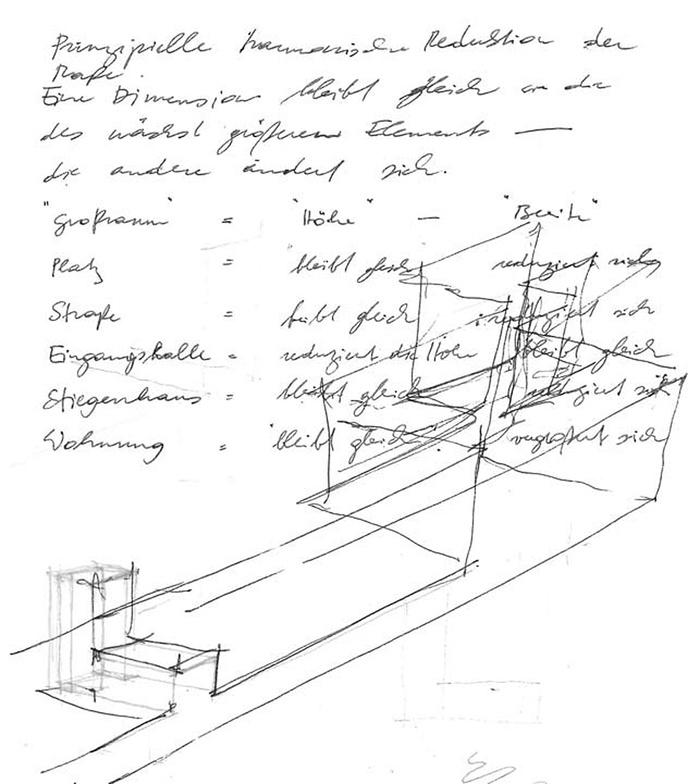 Prinzipielle harmonische Reduktion der
Maße.
Eine Dimension bleibt gleich an die
des nächst größeren Elements —
die andere ändert sich.
"Großraum" = "Höhe" — "Breite"
Platz = "bleibt gleich reduziert sich
Straße = bleibt gleich reduziert sich
Eingangshalle = reduziert die Höhe bleibt gleich
Stiegenhaus = bleibt gleich reduziert sich
Wohnung = "bleibt gleich" vergrößert sich